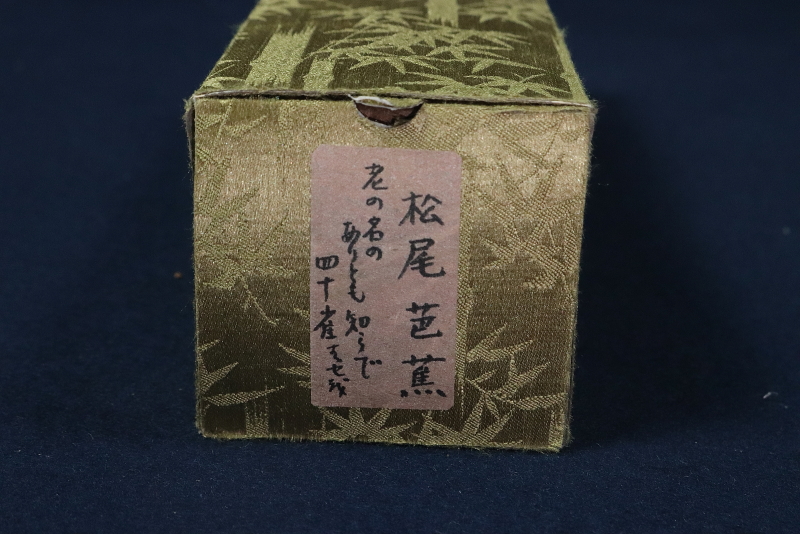 松尾芭蕉
老の名の
ありとも知らで
四十雀